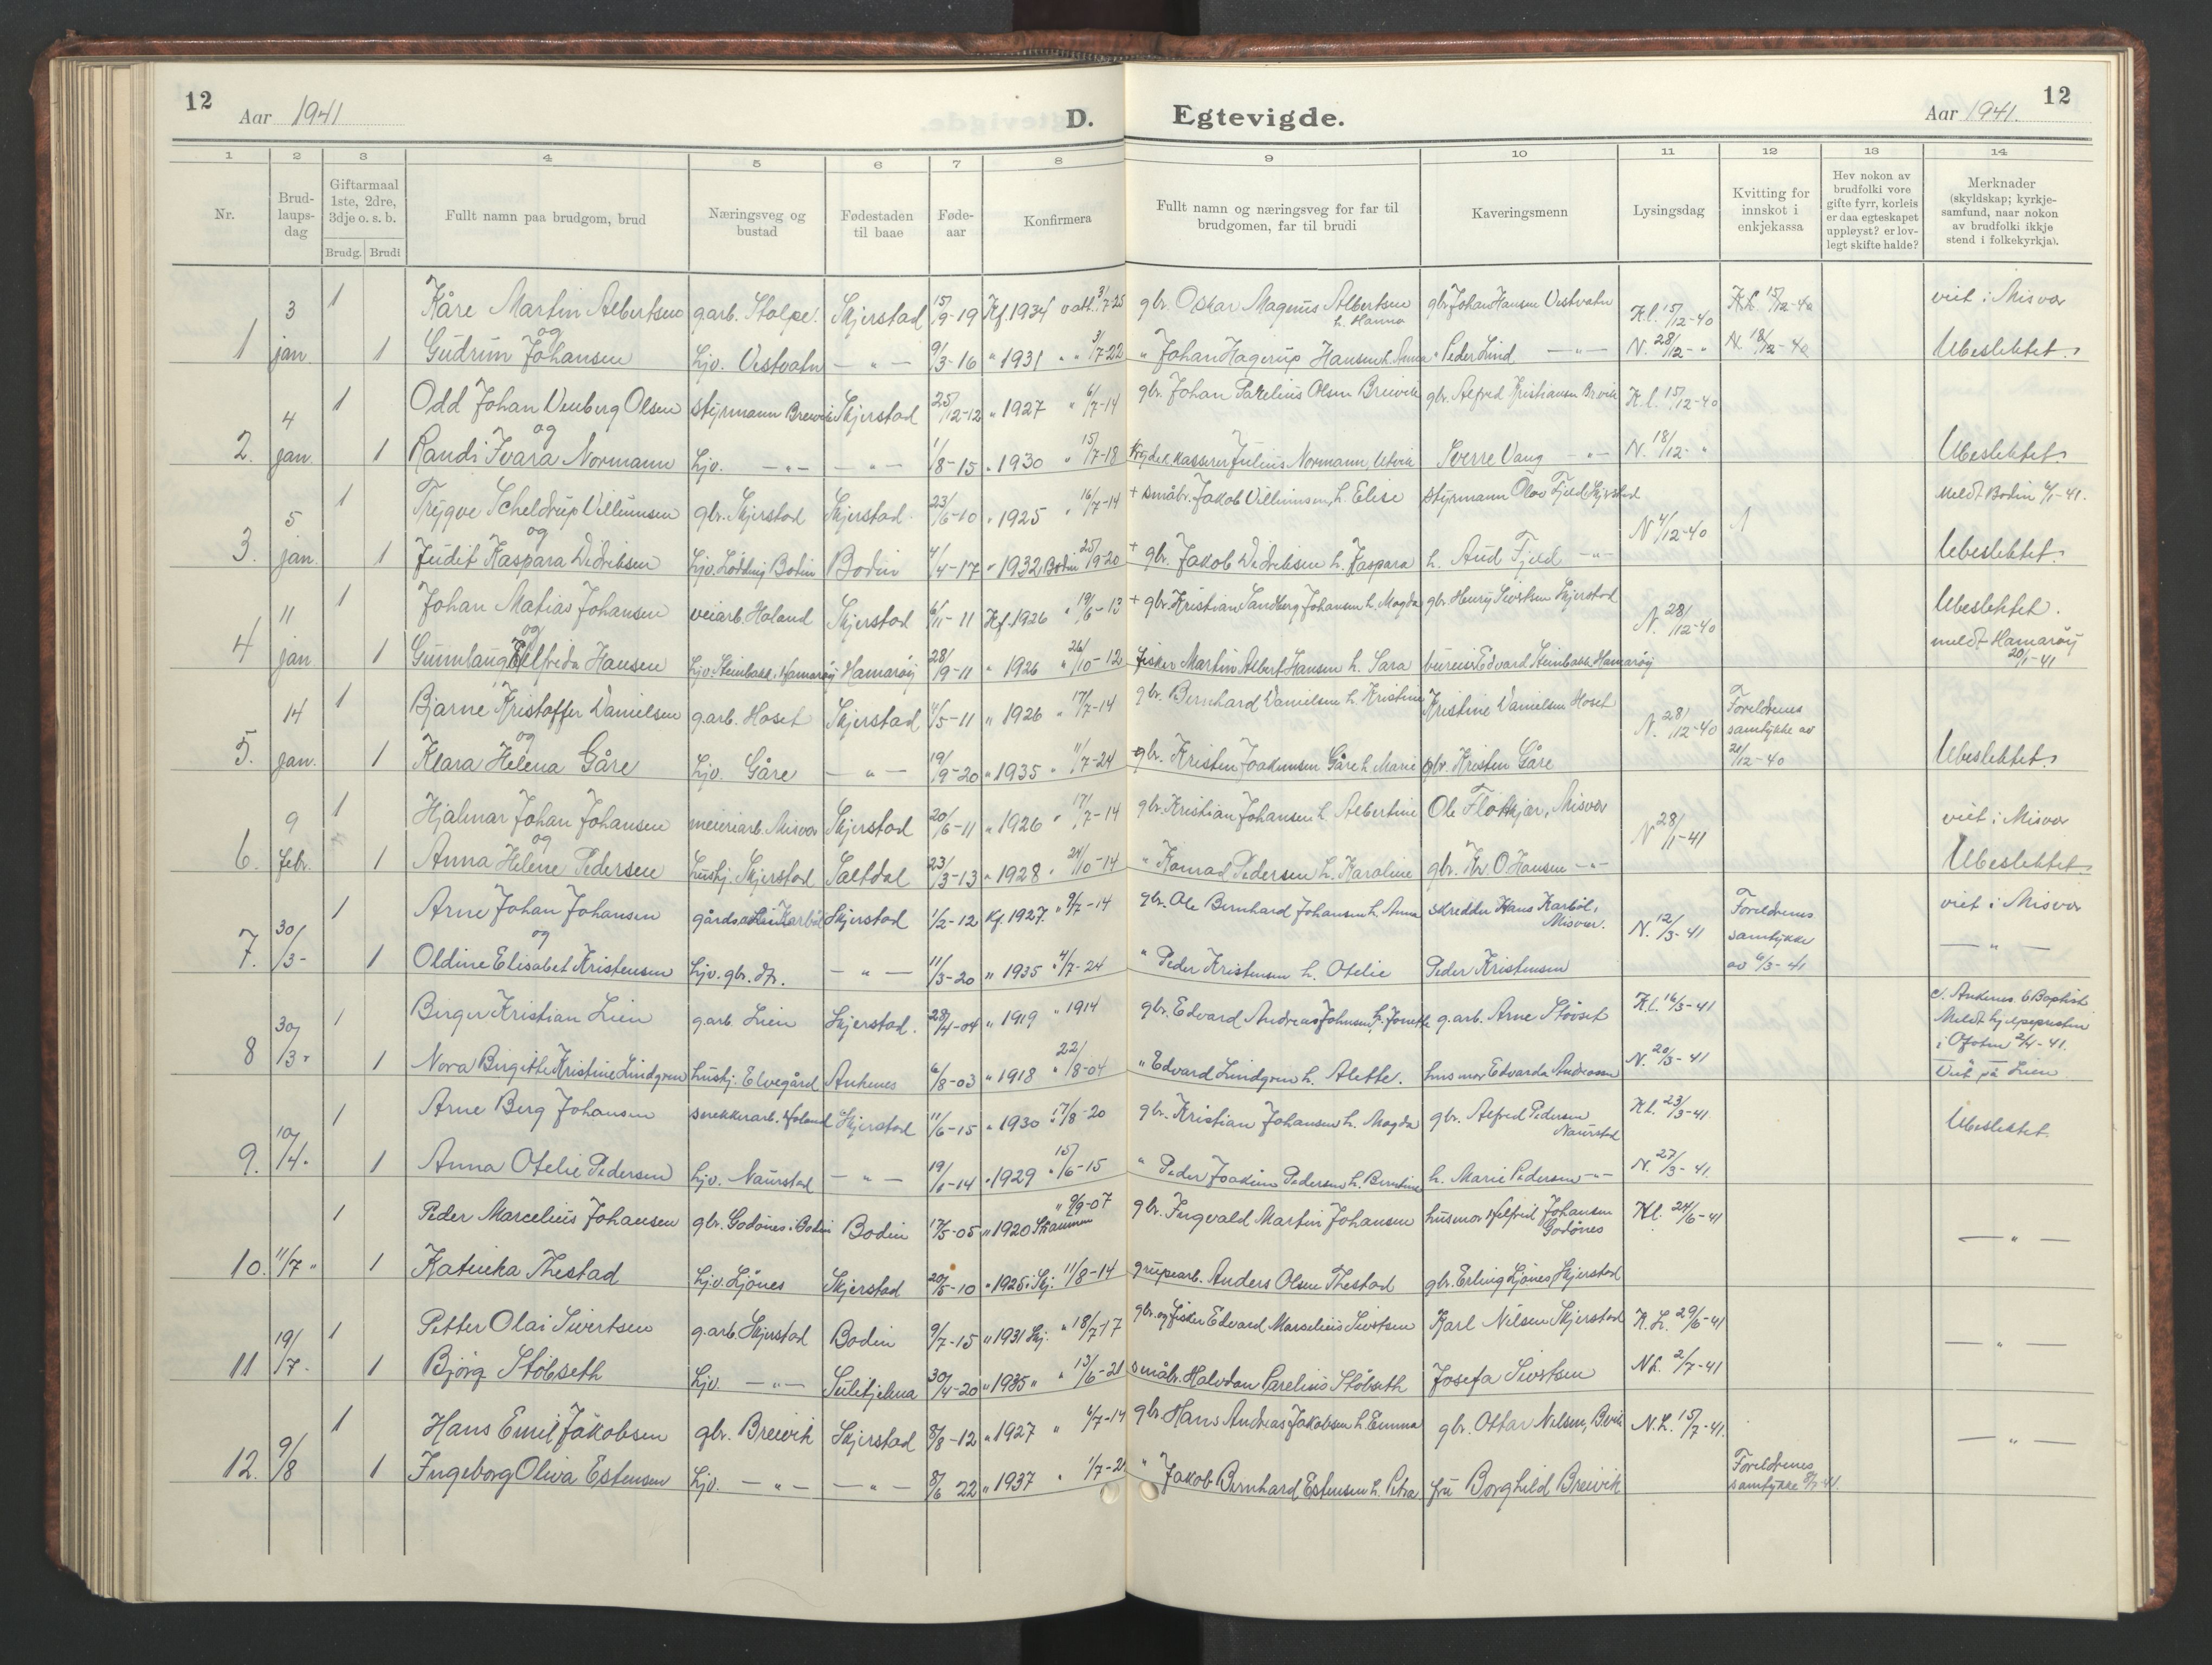 12
Aar 1941
D.
Egtevigde.
Aar 1941.
12
1 2 3 4 5 6 7 8 9 10 11 12 13 14
Nr.
Brud-
laups-
dag
Giftarmaal
1ste, 2dre,
3dje o. s. b.
Brudg. Brudi
Fullt namn paa brudgom, brud
Næringsveg og
bustad
Fødestaden
til baae
Føde-
aar
Konfirmera
Fullt namn og næringsveg for far til
brudgomen, far til brudi
Kaveringsmenn
Lysingsdag
Kvitting for
innskot i
enkjekassa
Hev nokon av
brudfolki vore
gifte fyrr, korleis
er daa egteskapet
uppløyst? er lov-
legt skifte halde?
Merknader
(skyldskap; kyrkje-
samfund, naar nokon
av brudfolki ikkje
stend i folkekyrkja).
3 1 Kåre Martin Albertsen g.arb. Stolpe. Skjerstad 15/9-19 Kf. 1934 vatt. 31/7-25 gbr. Oskar Magnus Albertsen h. Hanna gbr. Johan Hansen Vestvatn Kl. 15/12-40 Kl. 15/12-40 viet i Misvær
og
1 jan. 1 Gudrun Johansen hjv. Vestvatn — " — 9/3-16 " 1931 " " 3/7-22 " Johan Hagerup Hansen h. Anna " Peder Lund — " — N. 28/12- " N. 18/12-40 Ubeslektet.
4 1 Odd Johan Venberg Olsen styrmann Breivik Skjerstad 25/12-12 " 1927 " 6/7-14 gbr. Johan Parelius Olsen Breivik gbr. Alfred Kristiansen Breivik Kl. 15/12-40
og
2. jan. 1 Randi Ivara Normann hjv. — " — — " — 1/8-15 " 1930 " 15/7-18 kasserer Julius Normann, Utvik Sverre Vang — " — N. 18/12- " Ubeslektet.
5 1 Trygve Scheldrup Villumsen gbr. Skjerstad Skjerstad. 23/6-10 " 1925 " 16/7-14 + småbr. Jakob Villumsen, h. Elise styrmann Olav Fjeld Skjerstad N 4/12-40 Meldt Bodin 6/1-41.
og
3. jan. 1 Judit Kaspara Didriksen hjv. Løding Bodin Bodin 4/4-17 " 1932 Bodin 25/9-20 + gbr. Jakob Didriksen h. Kaspara h. Aud Fjeld — " — Ubeslektet.
11 1 Johan Matias Johansen veiarb. Høland Skjerstad 6/11-11 Kf. 1926 " 19/6-13 + gbr. Kristian Sandberg Johansen h. Magda gbr. Henry Sivertsen Skjerstad N. 28/12-40 Ubeslektet.
og
4 jan 1 Gunnlaug Elfrida Hansen hjv. Steinbakk, Hamarøy Hamarøy 28/9-11 " 1926 " 26/10-12 fisker Martin Albert Hansen h. Sara bureiser Edvard Steinbakk Hamarøy meldt Hamarøy 20/1-41
14 1 Bjarne Kristoffer Danielsen g.arb. Hoset Skjerstad 4/5-11 " 1926 " 17/7-14 gbr. Bernhard Danielsen h. Kristine Kristine Danielsen Hoset N. 28/12-40 Foreldrenes
samtykke av
20/12-40
og
5. jan. 1 Klara Helena Gåre hjv. Gåre — " — 19/9-20 " 1935 " 11/7-24 gbr. Kristen Joakimsen Gåre h. Marie gbr. Kristen Gåre Ubeslektet.
9 1 Hjalmar Johan Johansen meieriarb. Misvær Skjerstad 20/6-11 " 1926 " 17/7-14 gbr. Kristian Johansen h. Albertine Ole Flotkjær, Misvær N 28/1-41 viet i Misvær
og
6. febr. 1 Anna Helene Pedersen hushj. Skjerstad Saltdal 23/3-13 " 1928 " 24/10-14 " Konrad Pedersen h. Karoline gbr. Kr. O Hansen — " — Ubeslektet.
30/3- 1 Arne Johan Johansen Karbøl Skjerstad 1/2-12 Kf. 1927. " 9/7-14 gbr. Ole Bernhard Johansen h. Anna skredder Hans Karbøl, Misvær. N. 12/3-41 Foreldrenes
samtykke
av 6/3-41 viet i Misvær
og
7. 1 Oldine Elisabet Kristensen hjv. gbr. dtr. — " — 11/3-20 " 1935 " 4/7-24 " Peder Kristensen h. Otelie Peder Kristensen — " —
30/3- 1 Birger Kristian Lien g.arb. Lien Skjerstad. 28/4-04 " 1919 " 1914 gbr. Edvard Andreas Johnsen, h. Jonette g.arb. Arne Støvset Kl. 16/3-41 Ankenes. Baptist
Meldt hjelpepresten
i Ofoten 2/4-41.
8 1 Nora Birgitte Kristine Lindgren hushj. Elvegård Ankenes 6/8-03 " 1918 " 22/8-04 " Edvard Lindgren h. Alette. husmor Edvarda Andreassen N. 20/3-41 Viet på Lien
10/4. 1 Arne Berg Johansen snekkerarb. Høland Skjerstad 11/6-15 " 1930 " 17/8-20 gbr. Kristian Johansen h. Magda gbr. Alfred Pedersen Naurstad Kl. 23/3-41 Ubeslektet.
9. 1 Anna Otelie Pedersen hjv. Naurstad — " — 19/1-14 " 1929 " 15/6-15 " Peder Joakim Pedersen h. Berntine h. Marie Pedersen — " — N. 27/3-41.
1 Peder Marcelius Johansen gbr. Godønes i Bodin Bodin 17/5-05 " 1920 " 9/9-07 gbr. Ingvald Martin Johansen husmor Alfrid Johansen Godønes Kl. 24/6-41
10. 11/7 " 1 Katinka Thestad hjv. Ljønes Skjerstad 20/5-10 " 1925 i Skj. 11/8-14 grupearb. Anders Olsen Thestad gbr. Erling Ljønes, Skjerstad — " —
19/7- 1 Petter Olai Sivertsen g.arb. Skjerstad Bodin 9/7-15 " 1931 Skj. " 18/7 17 gbr. og fisker Edvard Marselius Sivertsen Karl Nilsen Skjerstad K.L. 29/6-41
11 1 Bjørg Støbseth hjv. — " — Sulitjelma 30/4-20 " 1935 " " 13/6-21 småbr. Halvdan Parelius Støbseth Josefa Sivertsen NL. 2/7-41 — " —
9/8 1 Hans Emil Jakobsen gbr. Breivik Skjerstad 8/8-12 " 1927 " 6/7-14 gbr. Hans Andreas Jakobsen h. Emma gbr. Ottar Nilsen, Breivik N.L. 15/7-41. — " —
12. 1 Ingeborg Oliva Estensen hjv. — " — — " — 8/6 22 " 1937 " 1/7-21 " Jakob Bernhard Estensen h. Petra fru Borghild Breivik Foreldrenes
samtykke 8/7-41.